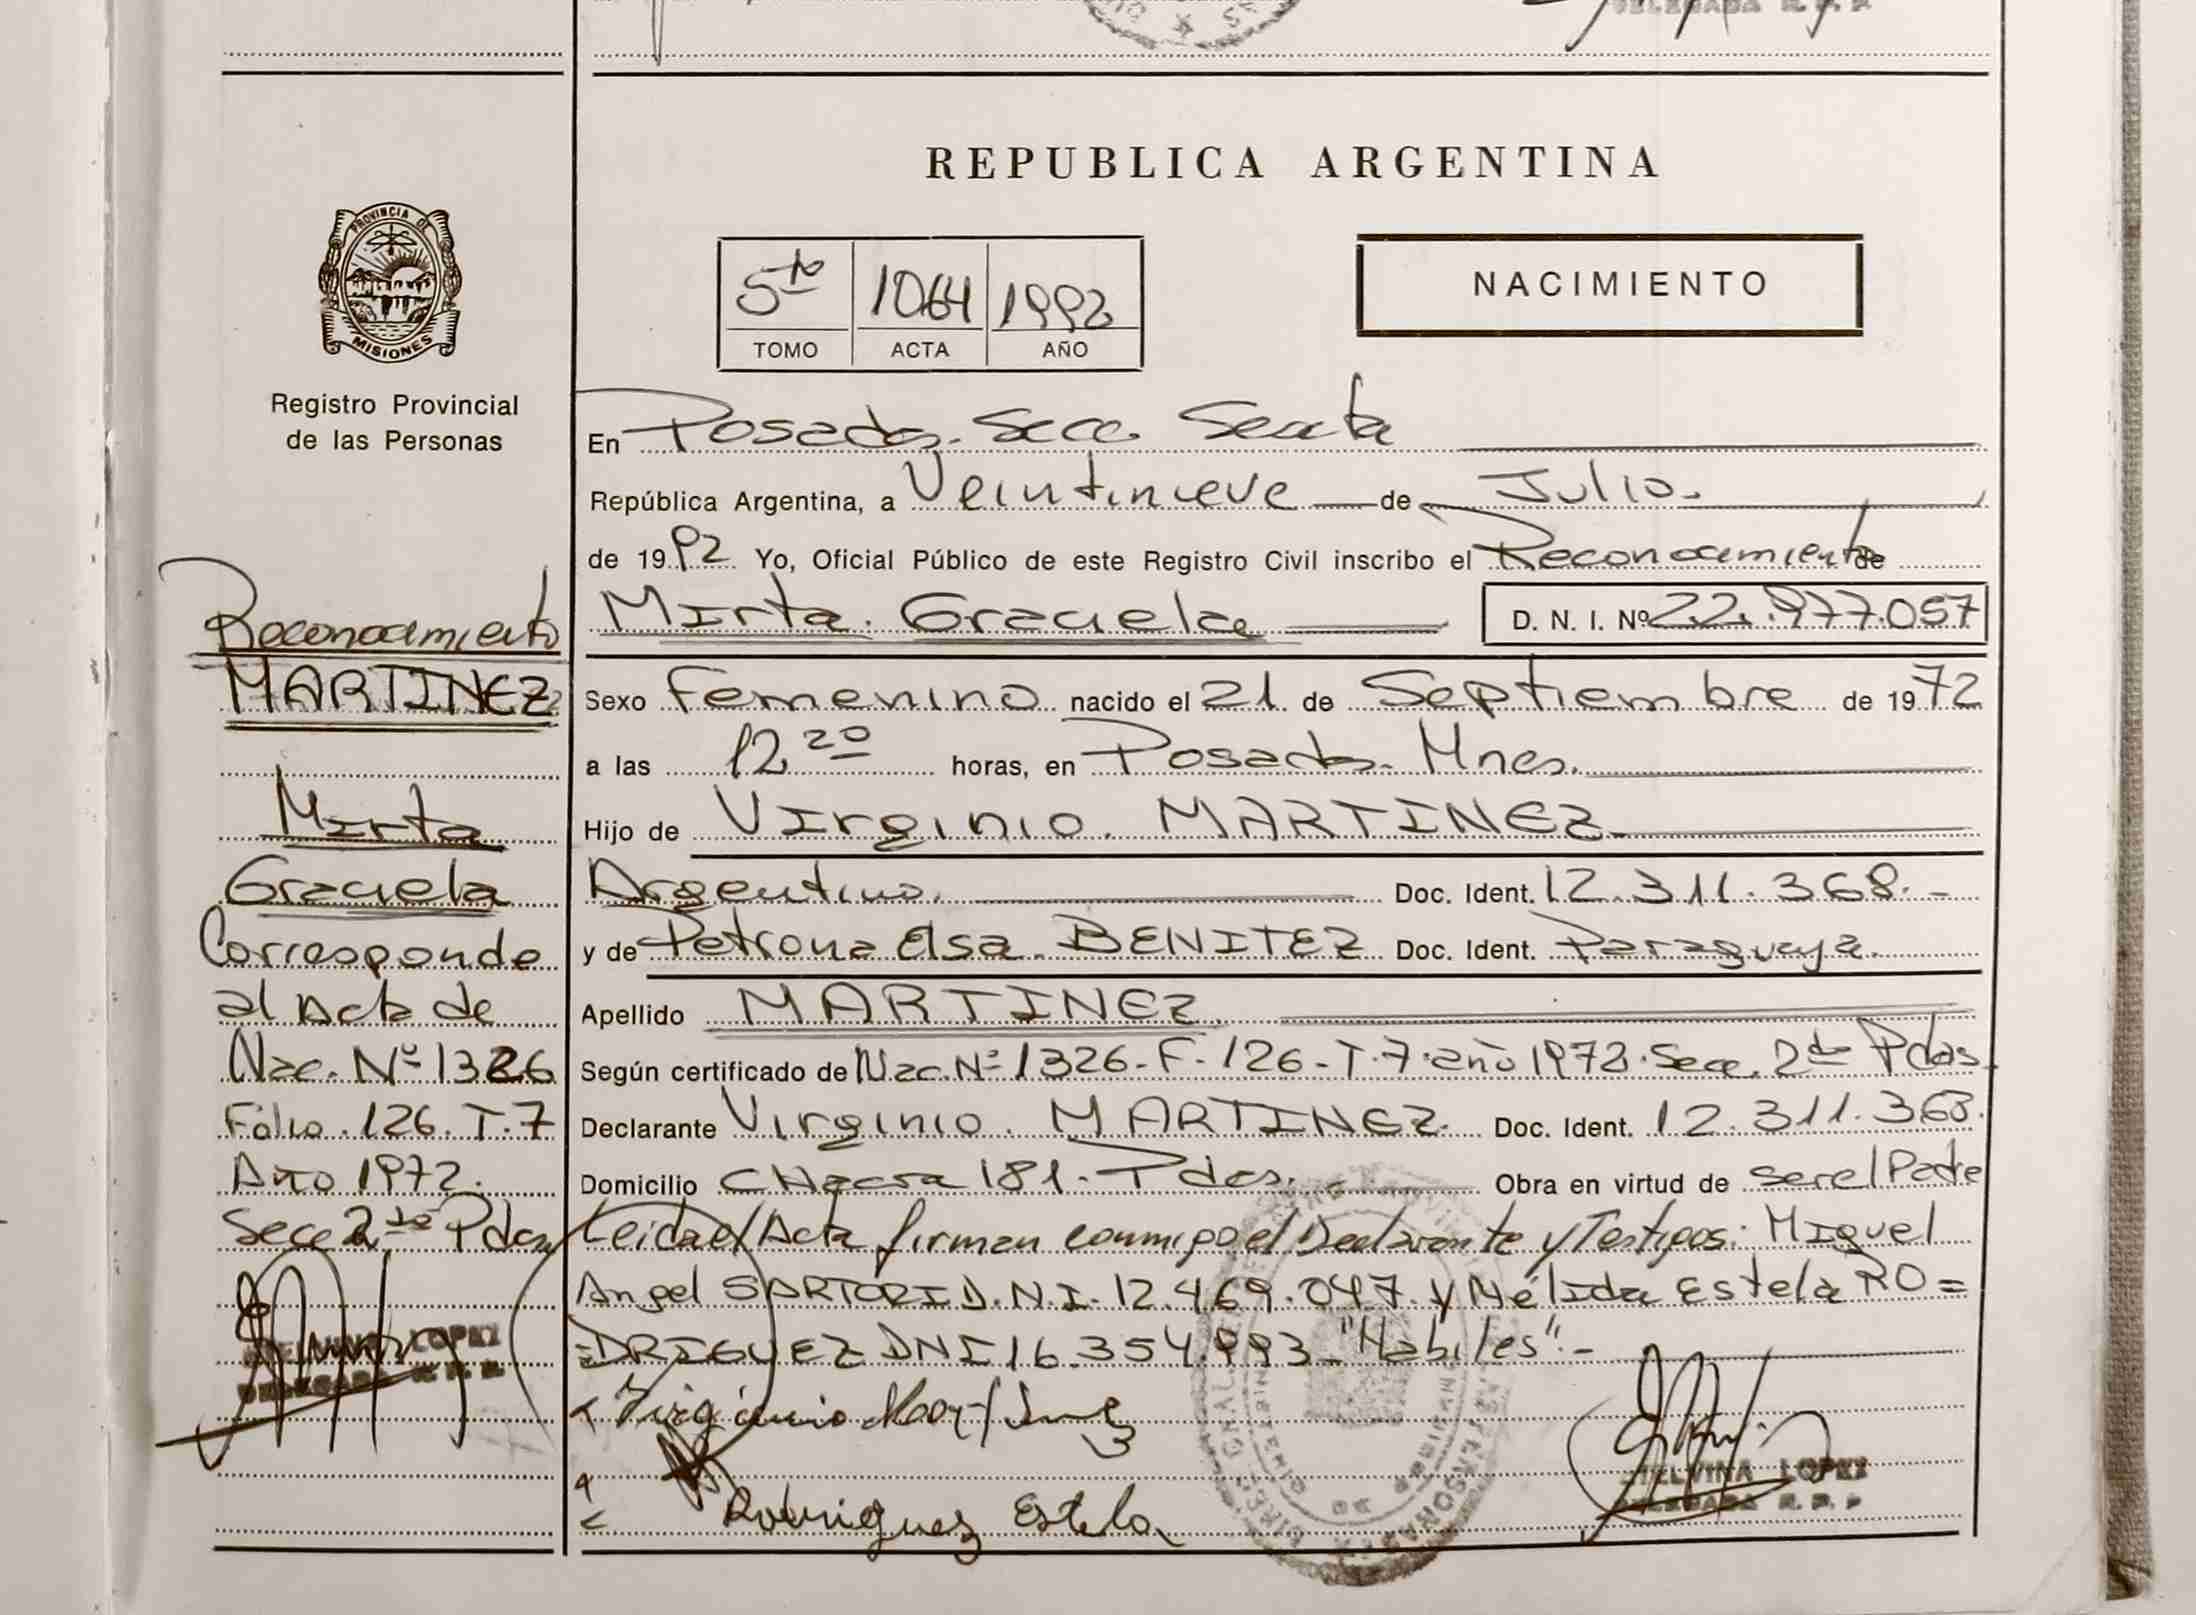 PROVINCIA DE
MISIONES
Registro Provincial
de las Personas
Reconocimiento
MARTINEZ
Mirta
Graciela
Corresponde
al Acta de
Nac. Nº 1326
Folio. 126. T. 7
Año 1972.
Secc 2da Pdas
LOPEZ
DELEGADA R. P. P.
REPUBLICA ARGENTINA
5to 1064 1992
TOMO ACTA AÑO
NACIMIENTO
En Posadas. Secc. Sexta
República Argentina, a Veintinueve de Julio.
de 1992 Yo, Oficial Público de este Registro Civil inscribo el Reconocimiento de
Mirta. Graciela D. N. I. Nº 22.977.057
Sexo Femenino nacido el 21 de Septiembre de 1972
a las 12 20 horas, en Posadas. Mnes.
Hijo de Virginio. MARTINEZ
Argentino. Doc. Ident. 12.311.368.-
y de Petrona Elsa. BENITEZ Doc. Ident. Paraguaya.
Apellido MARTINEZ
Según certificado de Nac. Nº 1326-F-126-T.7 año 1972. Secc. 2da Pdas
Declarante Virginio. MARTINEZ. Doc. Ident. 12.311.368.
Domicilio CHacra 181. Pdas. Obra en virtud de ser el Padre
Leida el Acta firman conmigo el Declarante y Testigos: Miguel
Angel SARTORI D.N.I. 12.469.047 y Nélida Estela RO=
=DRIGUEZ DNI 16.354.993 "Habiles".-
Rodriguez Estela
ETELVINA LOPEZ
DELEGADA R. P. P.